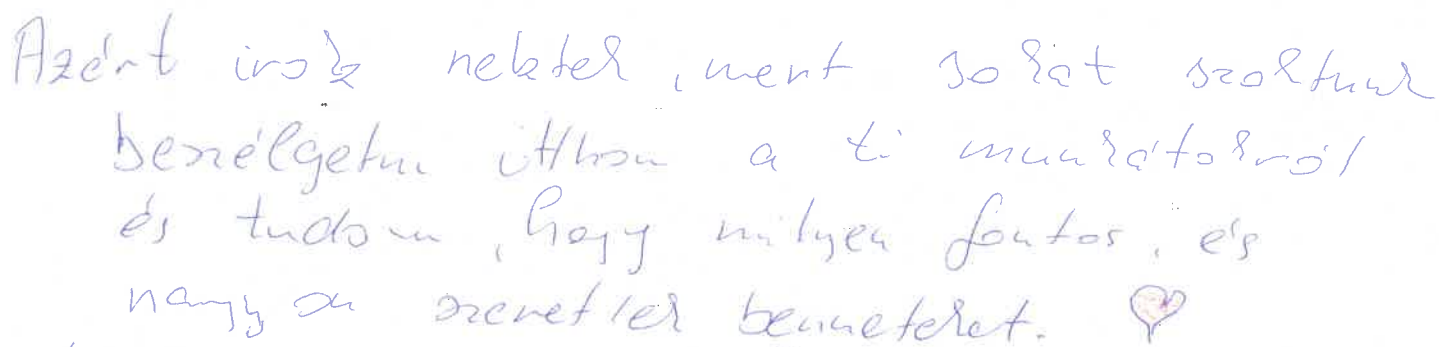 Azért irok nektek, mert sokat szoktunk
beszélgetni itthon a ti munkátokról
és tudom, hogy milyen fontos, és
nagyon szeretlek benneteket.